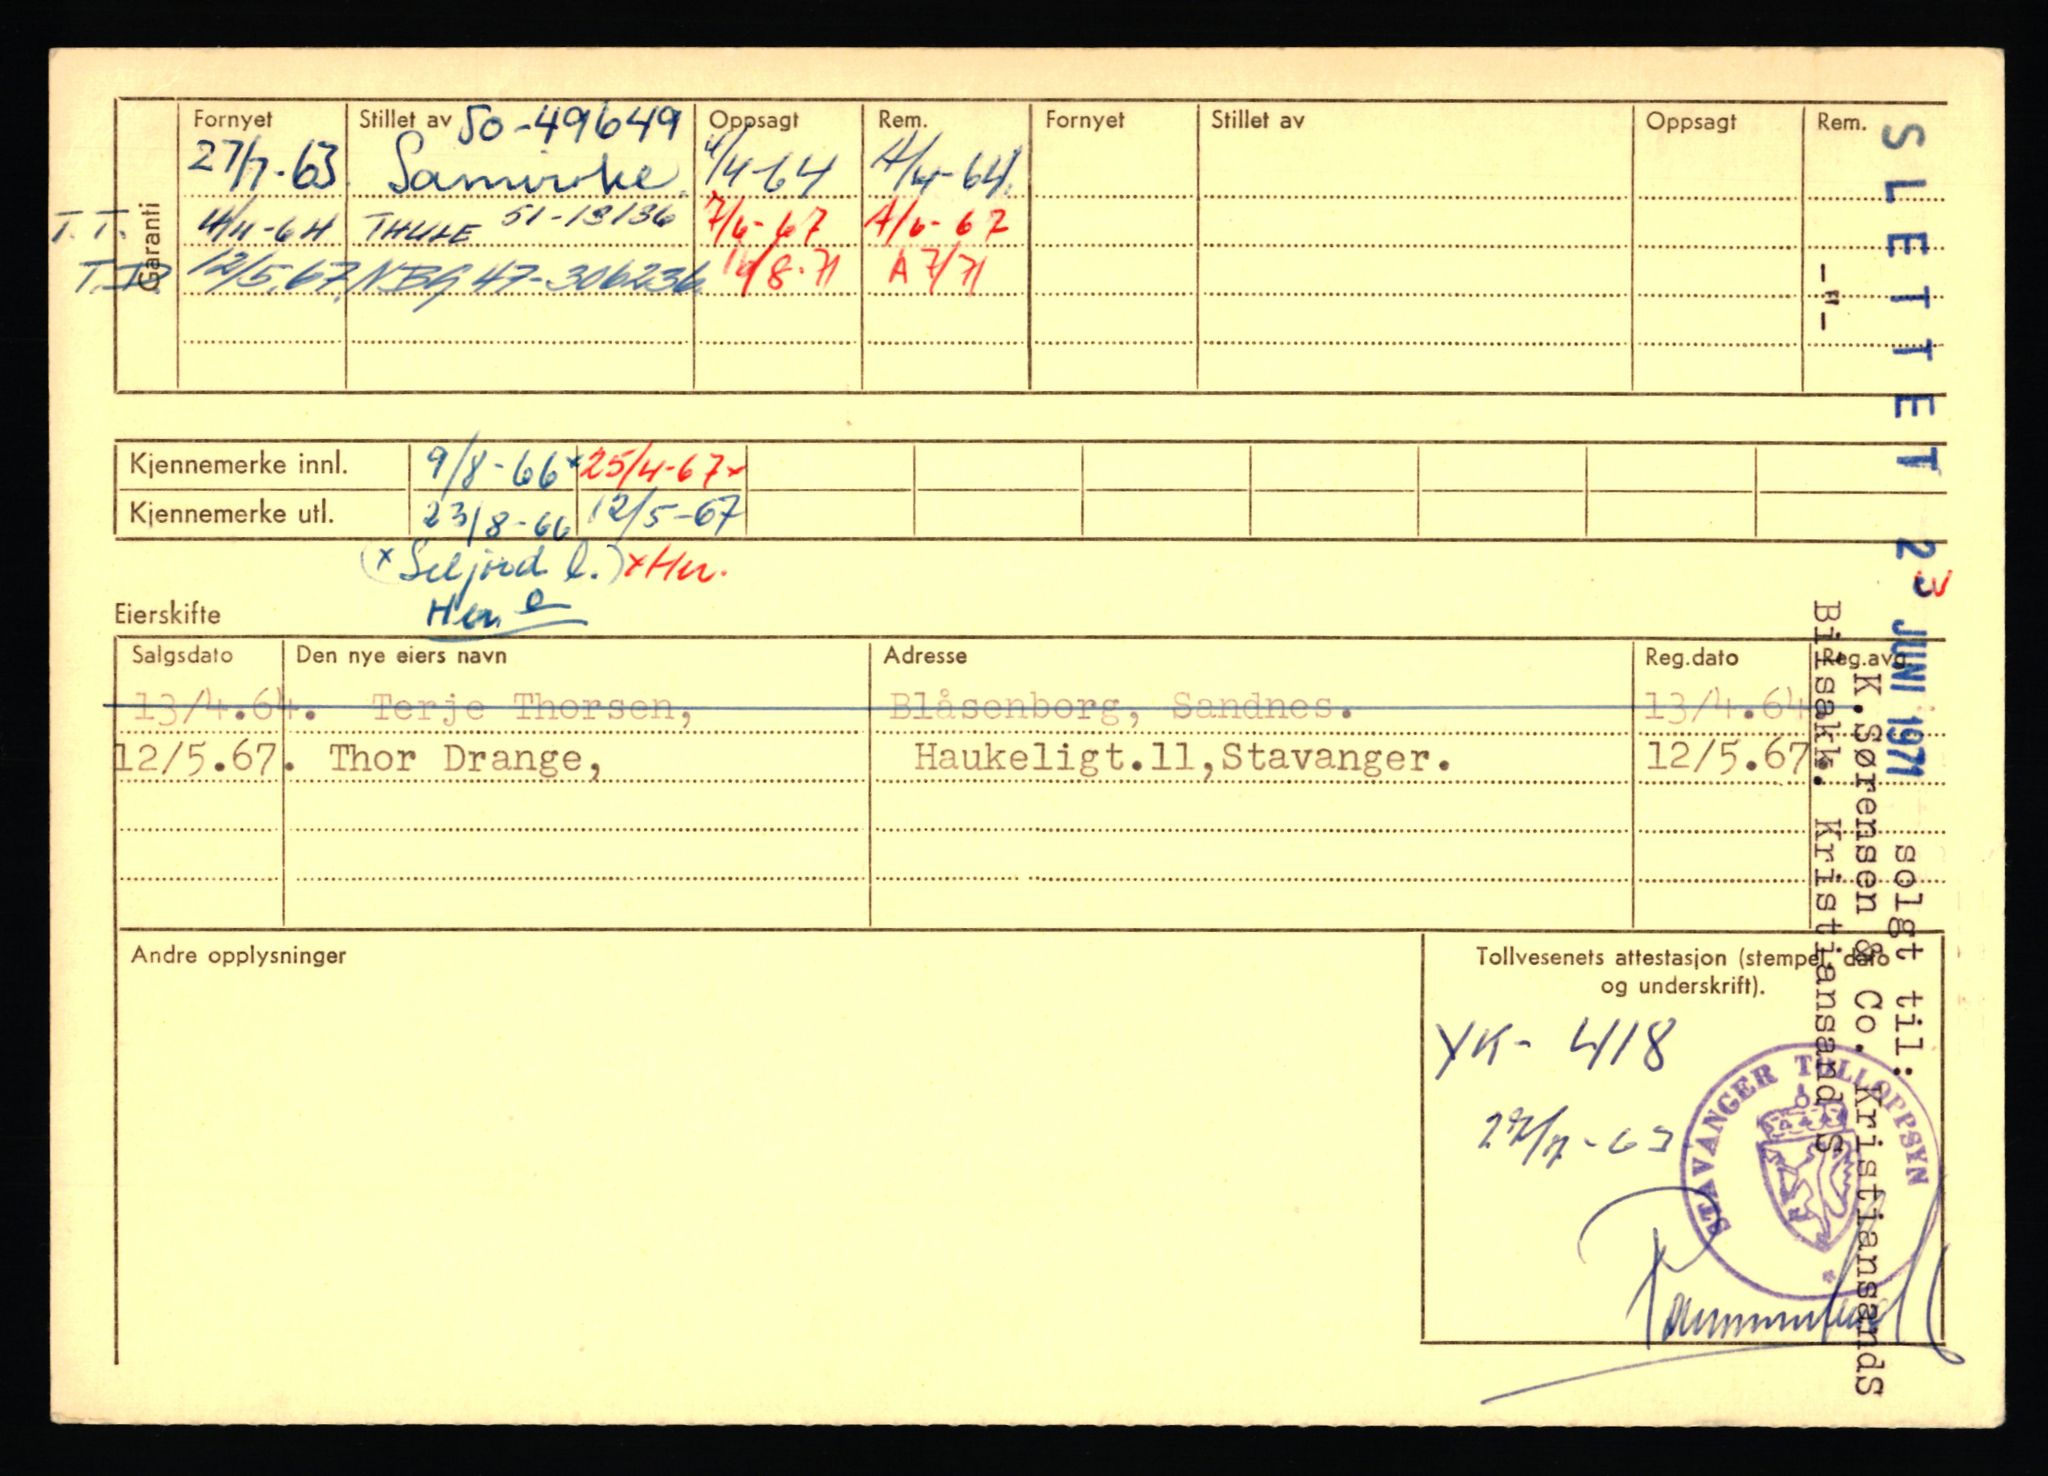 Garanti
Fornyet Stillet av Oppsagt Rem. Fornyet Stillet av Oppsagt Rem.
50-49649
27/7-63 Samvirke 4/4-64 A/4-64.
T.T. 4/4-64 THULE 51-13136 7/6-67 A/6-67
12/5.67. NBG 47-306236 /8-71 A 7/71
Kjennemerke innl. 9/8-66 x 25/4-67 x
Kjennemerke utl. 23/8-66 12/5-67
(x Seljord l.) x Her.
Her
Eierskifte
Salgsdato Den nye eiers navn Adresse Reg.dato Reg.avg.
13/4.64. Terje Thorsen, Blåsenborg, Sandnes. 13/4.64
12/5.67. Thor Drange, Haukeligt.11,Stavanger. 12/5.67.
Andre opplysninger
Tollvesenets attestasjon (stempel, dato
og underskrift).
YK- 418
27/7-63
STAVANGER TOLLOPPSYN
SLETTET 23 JUNI 1971 solgt til:
K.Sørensen & Co. Kristiansands
-"- Bilsakk. Kristiansand S